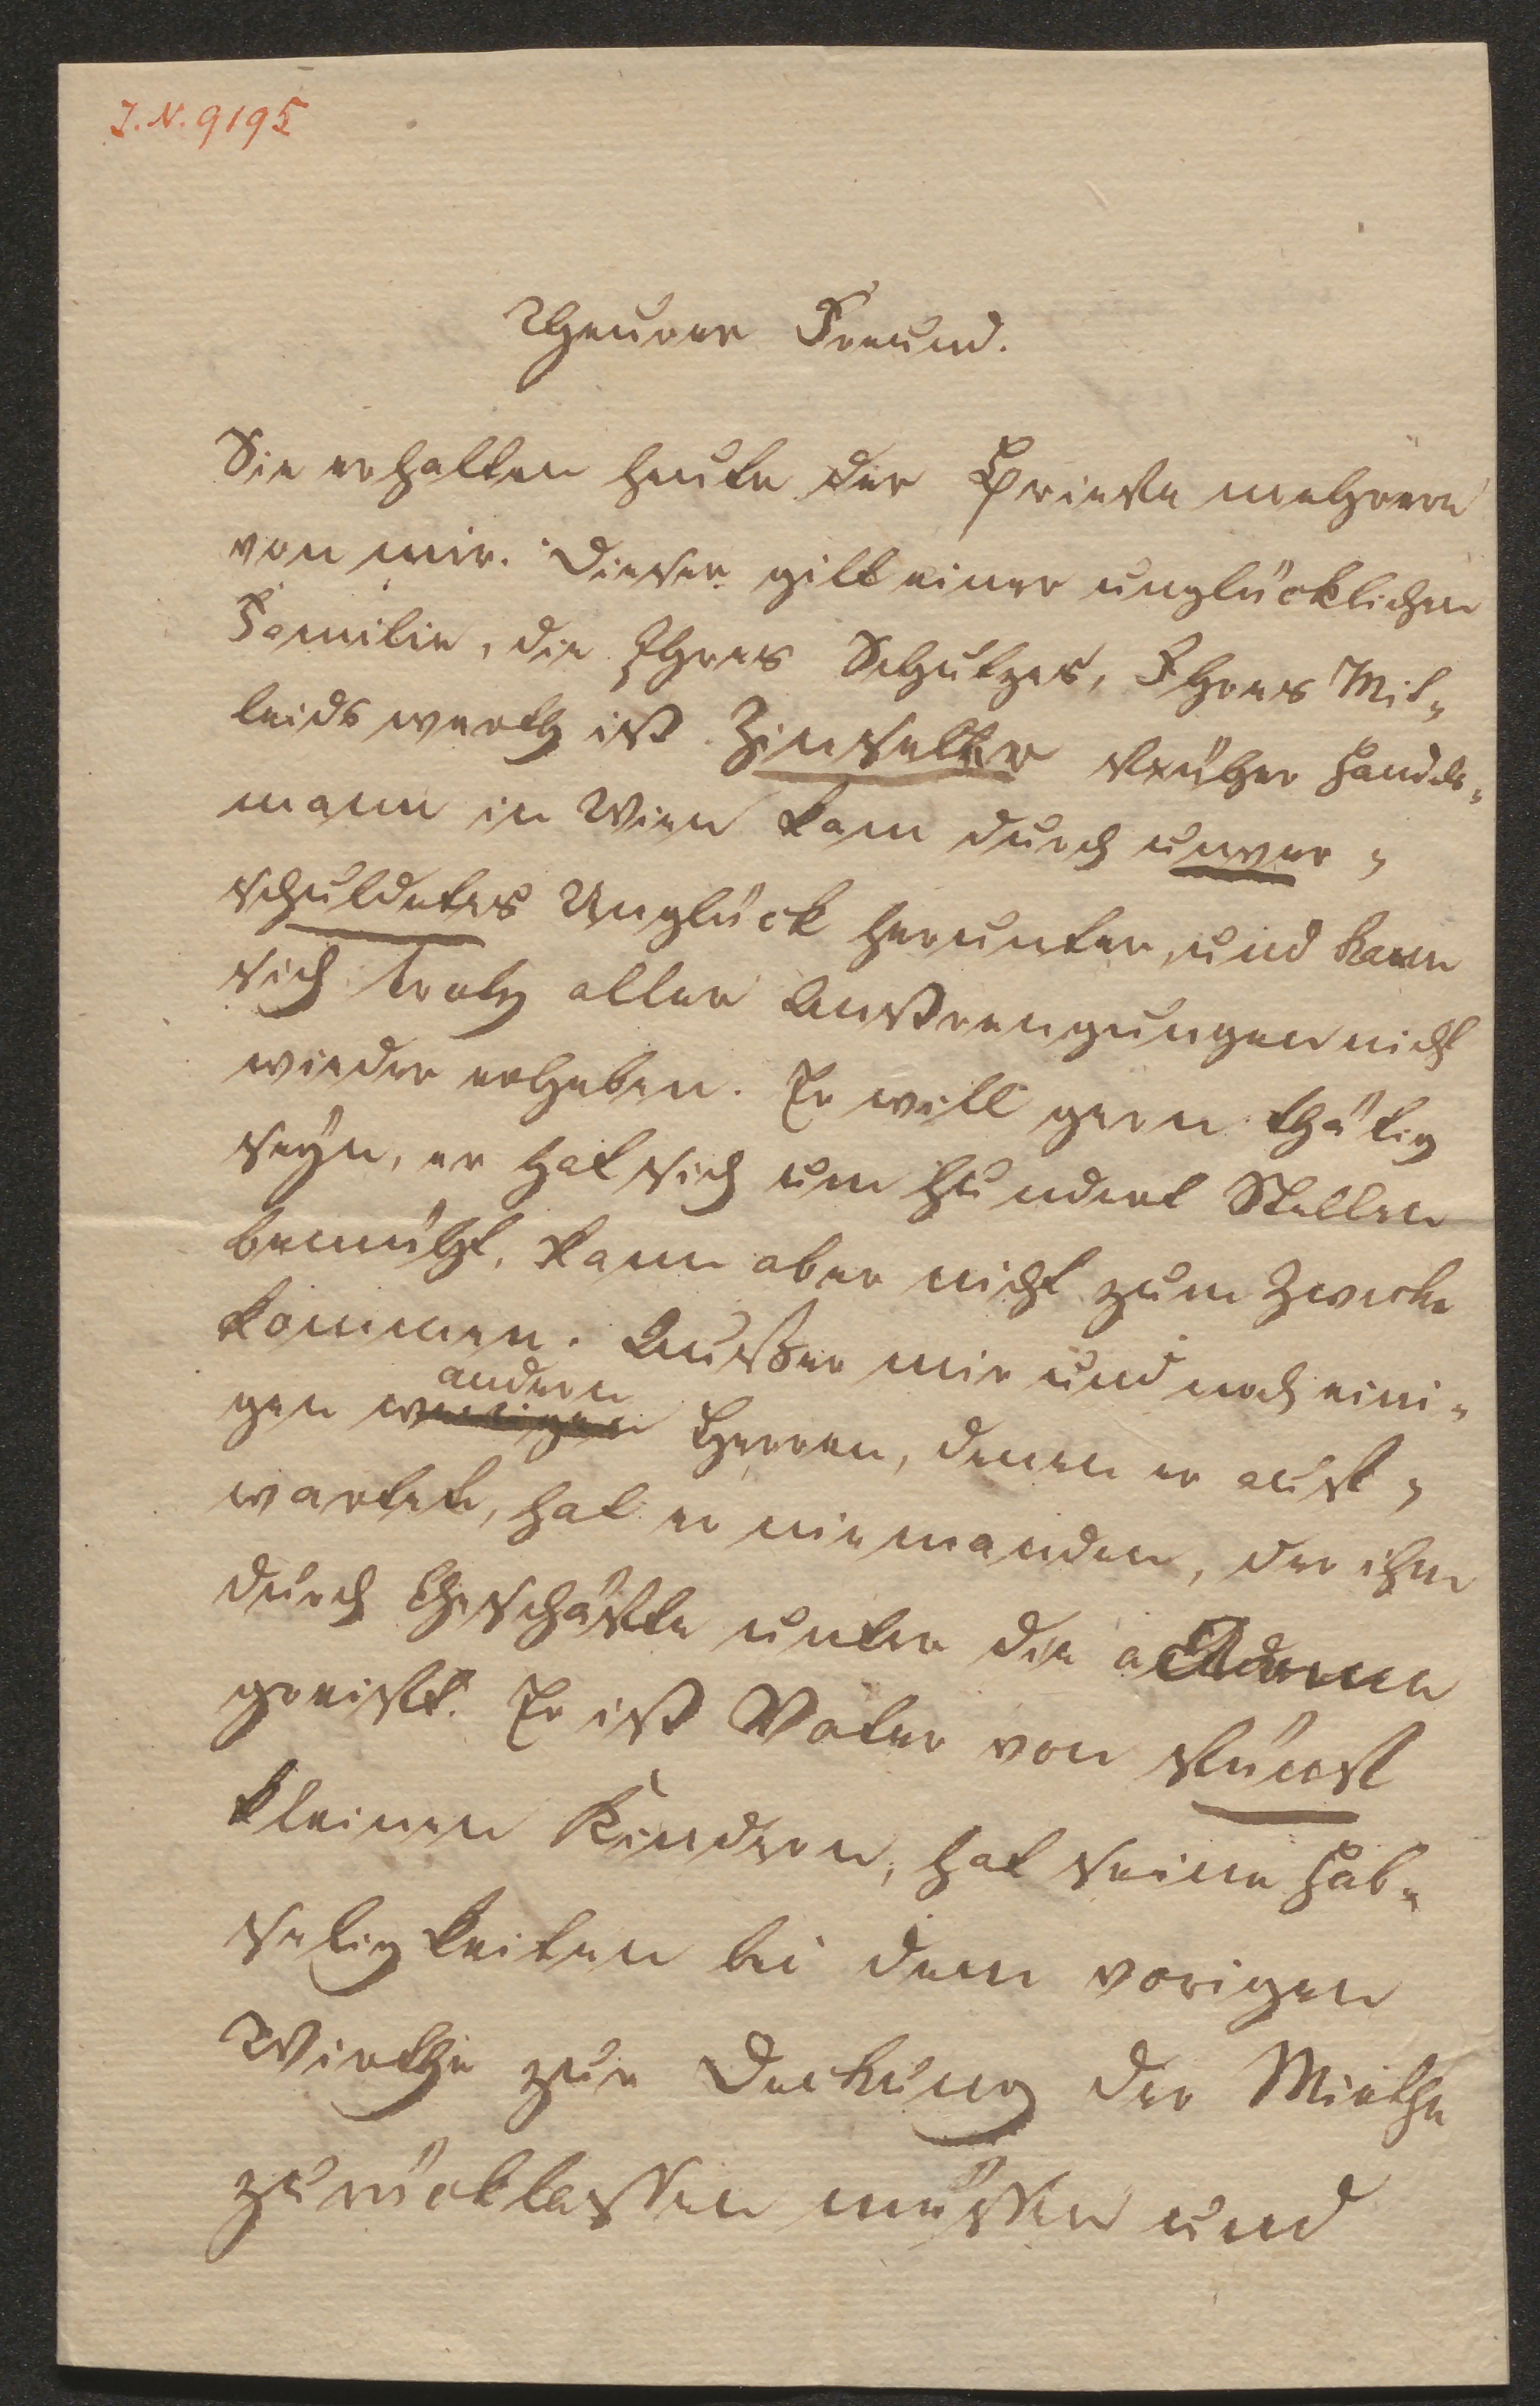 I. N. 9195
Theurer Freund.
Sie erhalten heute der Briefe mehrere
von mir. Dieser gilt einer unglücklichen
Familie, die Ihres Schutzes, Ihres Mit-
leids werth ist. Zinselher früher Handels-
mann in Wien kam durch unver-
schuldetes Unglück herunter, und kann
sich trotz aller Anstrengungen nicht
wieder erheben. Er will gern thätig
seyn, er hat sich um hundert Stellen
bemüht, kann aber nicht zum Zwecke
kommen. Außer mir und noch eini-
andern
gen wenigen Herren, denen er auf-
wartet, hat er niemanden, der ihm
durch Geschäfte unter die Arme
greift. Er ist Vater von fünf
kleinen Kindern, hat seine Hab-
seligkeiten bei dem vorigen
Wirthe zur Deckung der Miethe
zurücklassen müssen und